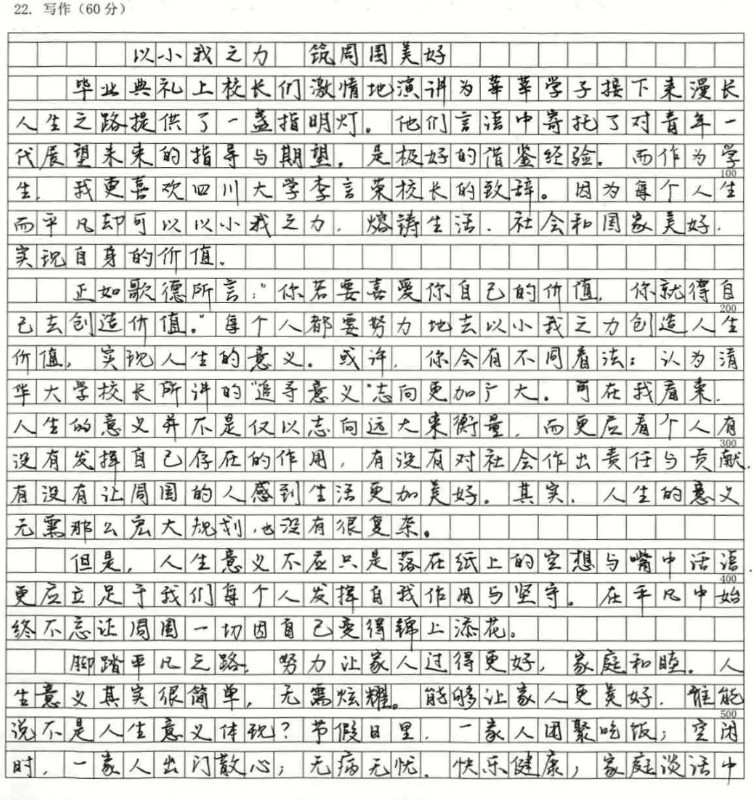 22. 写作（60分）
以小我之力 筑周围美好
毕业典礼上校长们激情地演讲为莘莘学子接下来漫长
人生之路提供了一盏指明灯。他们言语中寄托了对青年一
代展望未来的指导与期望，是极好的借鉴经验。而作为学
100
生，我更喜欢四川大学李言荣校长的致辞。因为每个人生
而平凡却可以以小我之力，熔铸生活、社会和国家美好，
实现自身的价值。
正如歌德所言："你若要喜爱你自己的价值，你就得自
200
己去创造价值。"每个人都要努力地去以小我之力创造人生
价值，实现人生的意义。或许，你会有不同看法：认为清
华大学校长所讲的"追寻意义"志向更加广大。可在我看来，
人生的意义并不是仅以志向远大来衡量，而更应看个人有
300
没有发挥自己存在的作用，有没有对社会作出责任与贡献，
有没有让周围的人感到生活更加美好。其实，人生的意义
无需那么宏大规划，也没有很复杂。
但是，人生意义不应只是落在纸上的空想与嘴中话语，
400
更应立足于我们每个人发挥自我作用与坚守。在平凡中始
终不忘让周围一切因自己变得锦上添花。
脚踏平凡之路，努力让家人过得更好，家庭和睦。人
生意义其实很简单，无需炫耀。能够让家人更美好，谁能
500
说不是人生意义体现？节假日里，一家人团聚吃饭；空闲
时，一家人出门散心；无病无忧，快乐健康；家庭谈话中